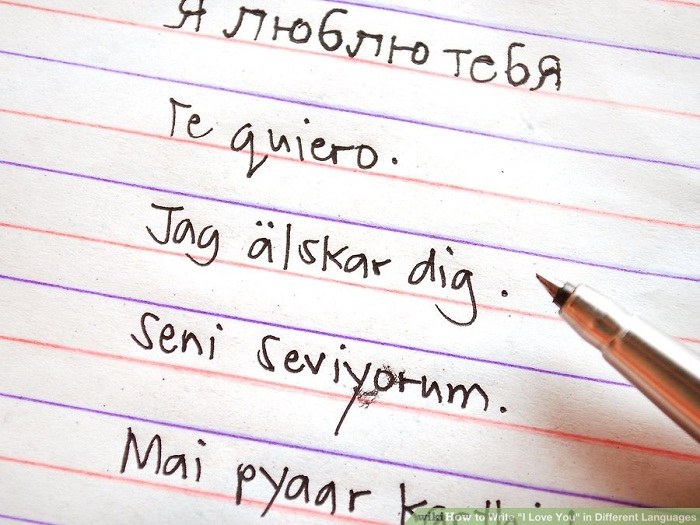 Я люблю тебя
Te quiero.
Jag älskar dig.
Seni seviyorum.
Mai pyaar
wikiHow to Write "I Love You" in Different Languages